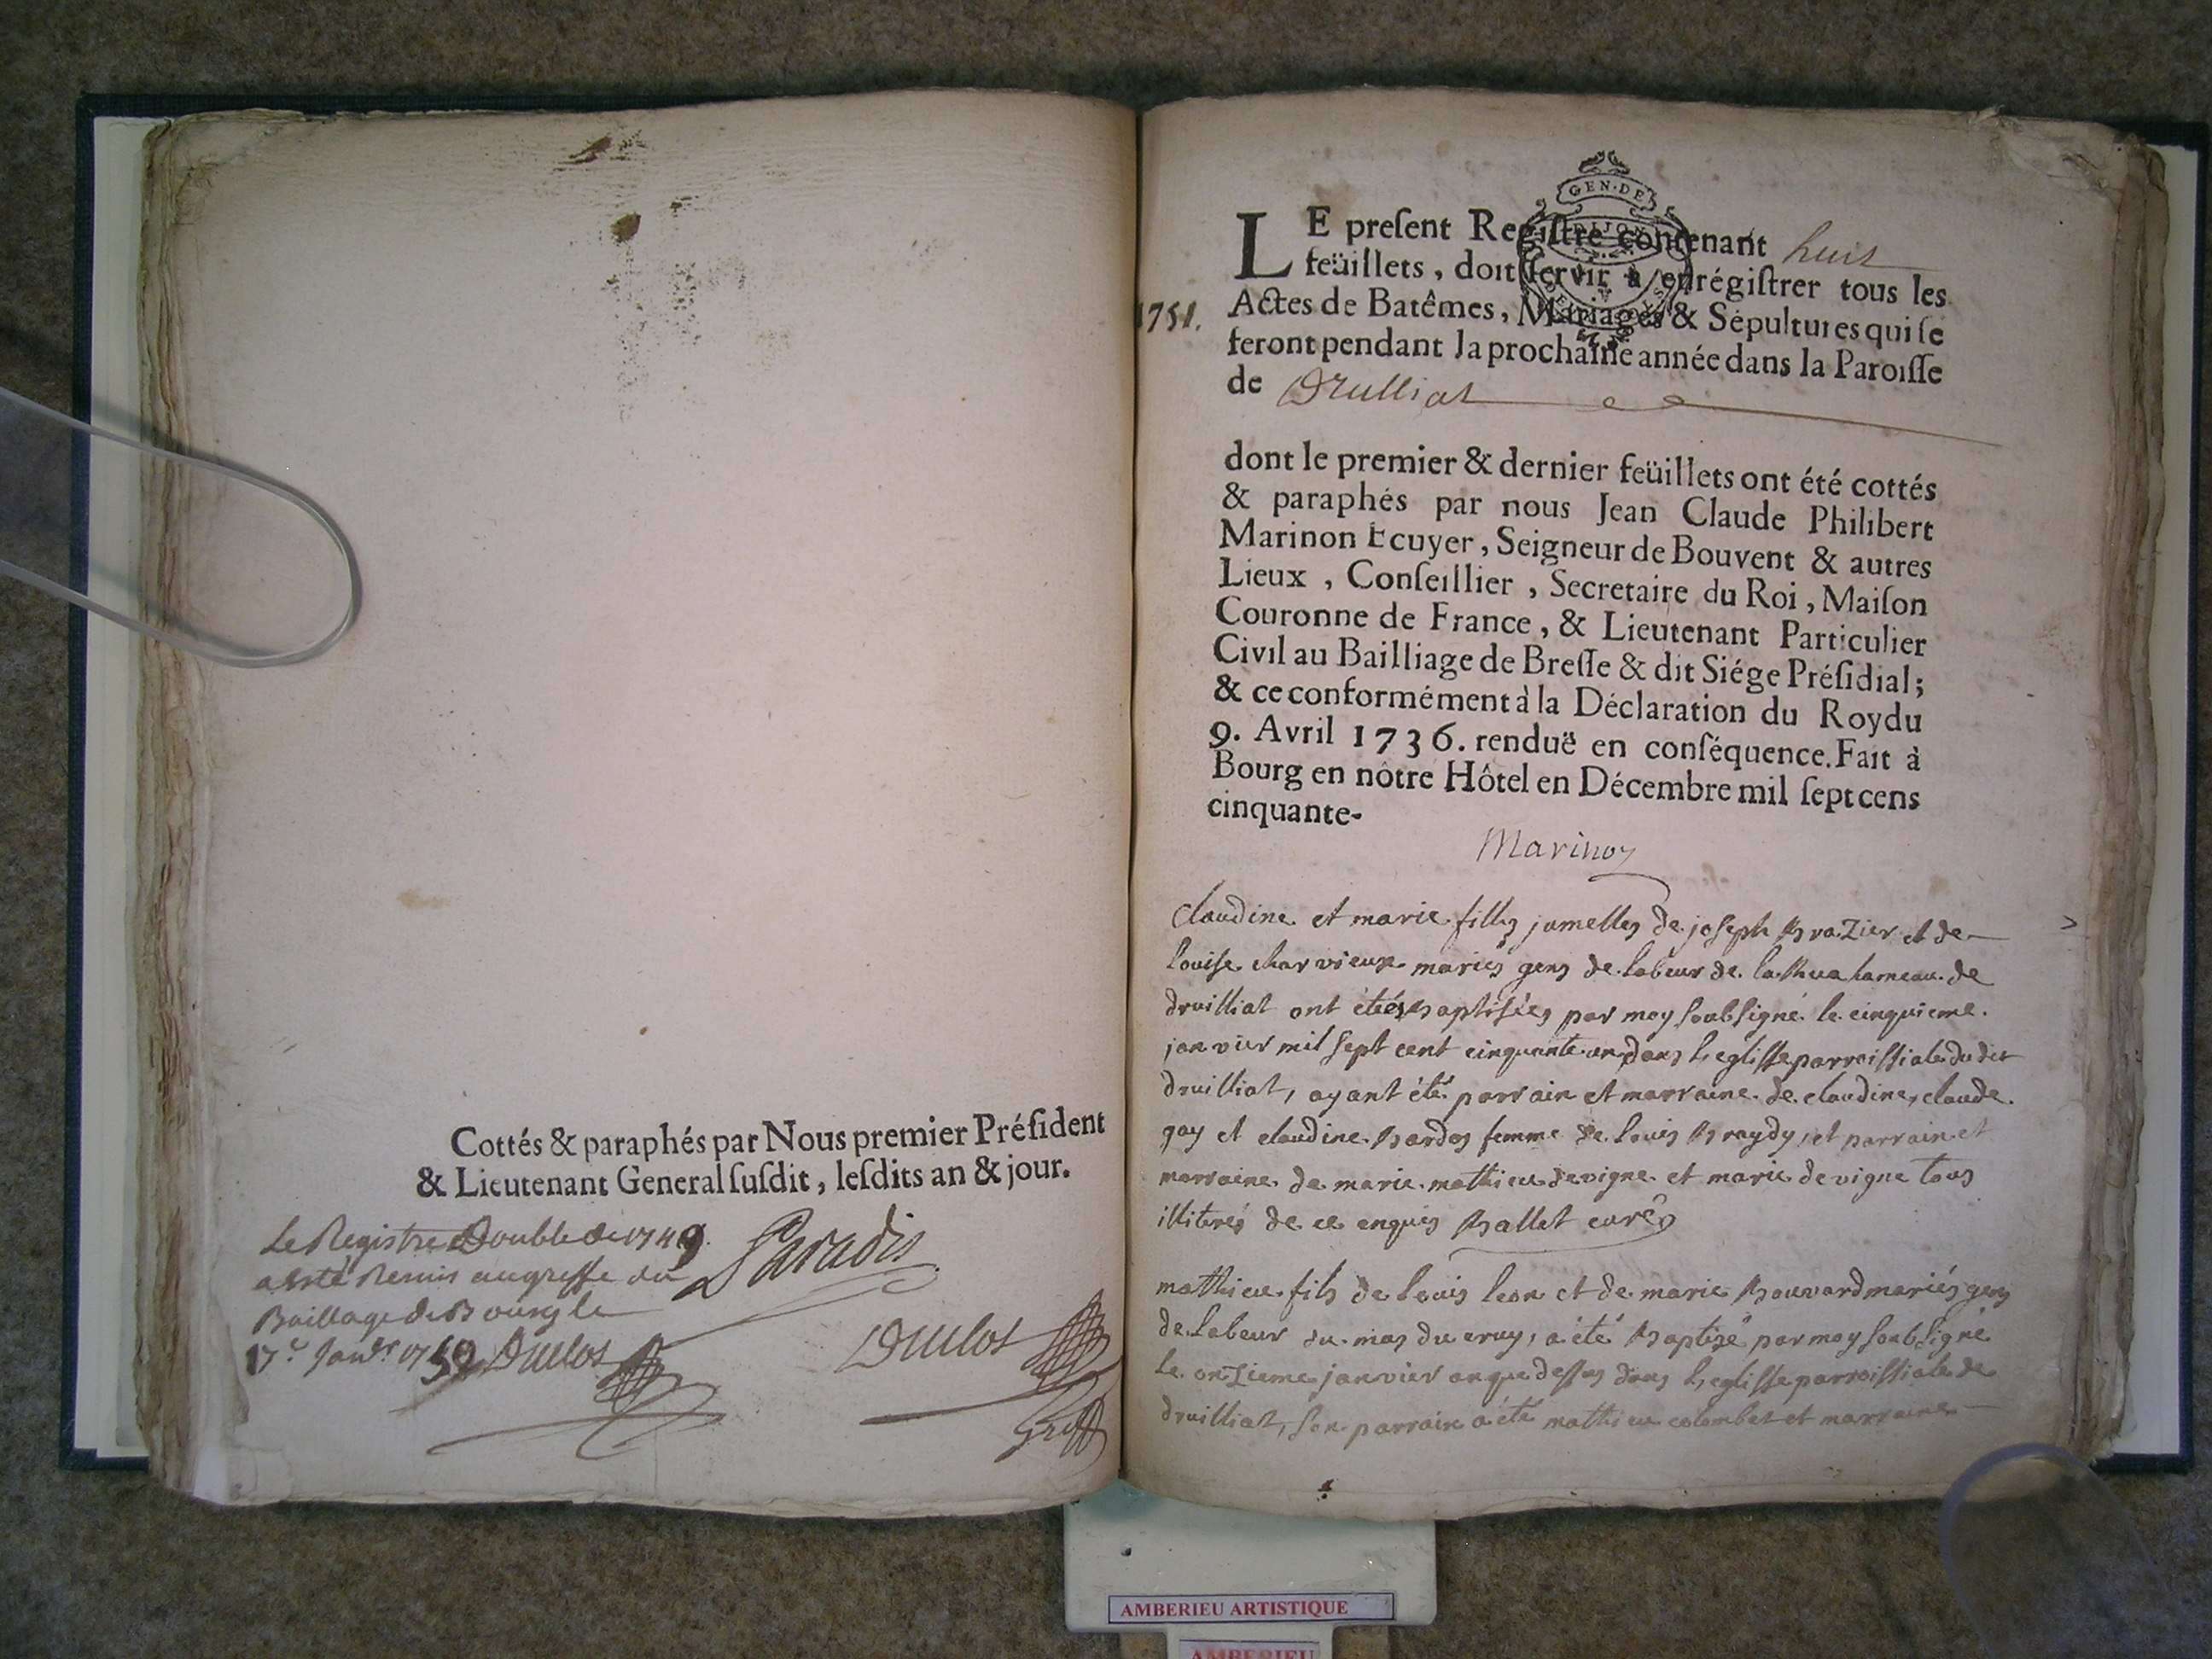 Cottés & paraphés par Nous premier Préſident
& Lieutenant General ſuſdit, leſdits an & jour.
Le Registre Double de 1749.
a esté Remis au greffe du
Baillage de Bourg le
17e Janvr 1750 Duclos
Paradis
Duclos
Greff
GEN·DE
DIJON
LE preſent Regiſtre contenant huit
feüillets, doit ſervir à enrégiſtrer tous les
1751.
Actes de Batêmes, Mariages & Sépultures qui ſe
feront pendant la prochaine année dans la Paroiſſe
de Drulliat
dont le premier & dernier feüillets ont été cottés
& paraphés par nous Jean Claude Philibert
Marinon Ecuyer, Seigneur de Bouvent & autres
Lieux, Conſeillier, Secretaire du Roi, Maiſon
Couronne de France, & Lieutenant Particulier
Civil au Bailliage de Breſſe & dit Siége Préſidial;
& ce conformément à la Déclaration du Roy du
9. Avril 1736. renduë en conſéquence. Fait à
Bourg en nôtre Hôtel en Décembre mil ſept cens
cinquante-
Marinon
Claudine et marie filles jumelles de joseph Brazier et de
louise charvieux mariés gens de labeur de hameau de
druilliat ont étées baptisées par moy soubsigné le cinquieme
janvier mil sept cent cinquante un dans l'eglisse parroissiale du dit
druilliat, ayant été parrain et marraine de claudine, claude
gay et claudine bardos femme de louis braydy, et parrain et
marraine de marie mathieu devigne et marie devigne tous
illiterés de ce enquis Ballet curé
mathieu fils de louis leon et de marie bouvard mariés gens
de labeur du mas du cruy, a été baptizé par moy soubsigné
le onzieme janvier an que dessus dans l'eglisse parroissiale de
druilliat, son parrain a été mathieu colombet et marraine
AMBERIEU ARTISTIQUE
AMBERIEU